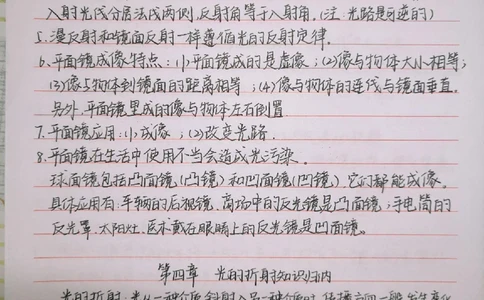 入射光线分居法线两侧,反射角等于入射角.(注:光路是可逆的)
5.漫反射和镜面反射一样遵循光的反射定律.
6.平面镜成像特点:(1)平面镜成的是虚像;(2)像与物体大小相等;
(3)像与物体到镜面的距离相等;(4)像与物体的连线与镜面垂直.
另外,平面镜里成的像与物体左右倒置.
7.平面镜应用:(1)成像;(2)改变光路.
8.平面镜在生活中使用不当会造成光污染.
球面镜包括凸面镜(凸镜)和凹面镜(凹镜),它们都能成像.
具体应用有:车辆的后视镜、商场中的反光镜是凸面镜;手电筒的
反光罩、太阳灶、医术戴在眼睛上的反光镜是凹面镜.
第四章 光的折射知识归纳
光的折射:光从一种介质斜射入另一种介质时,传播方向一般发生变化